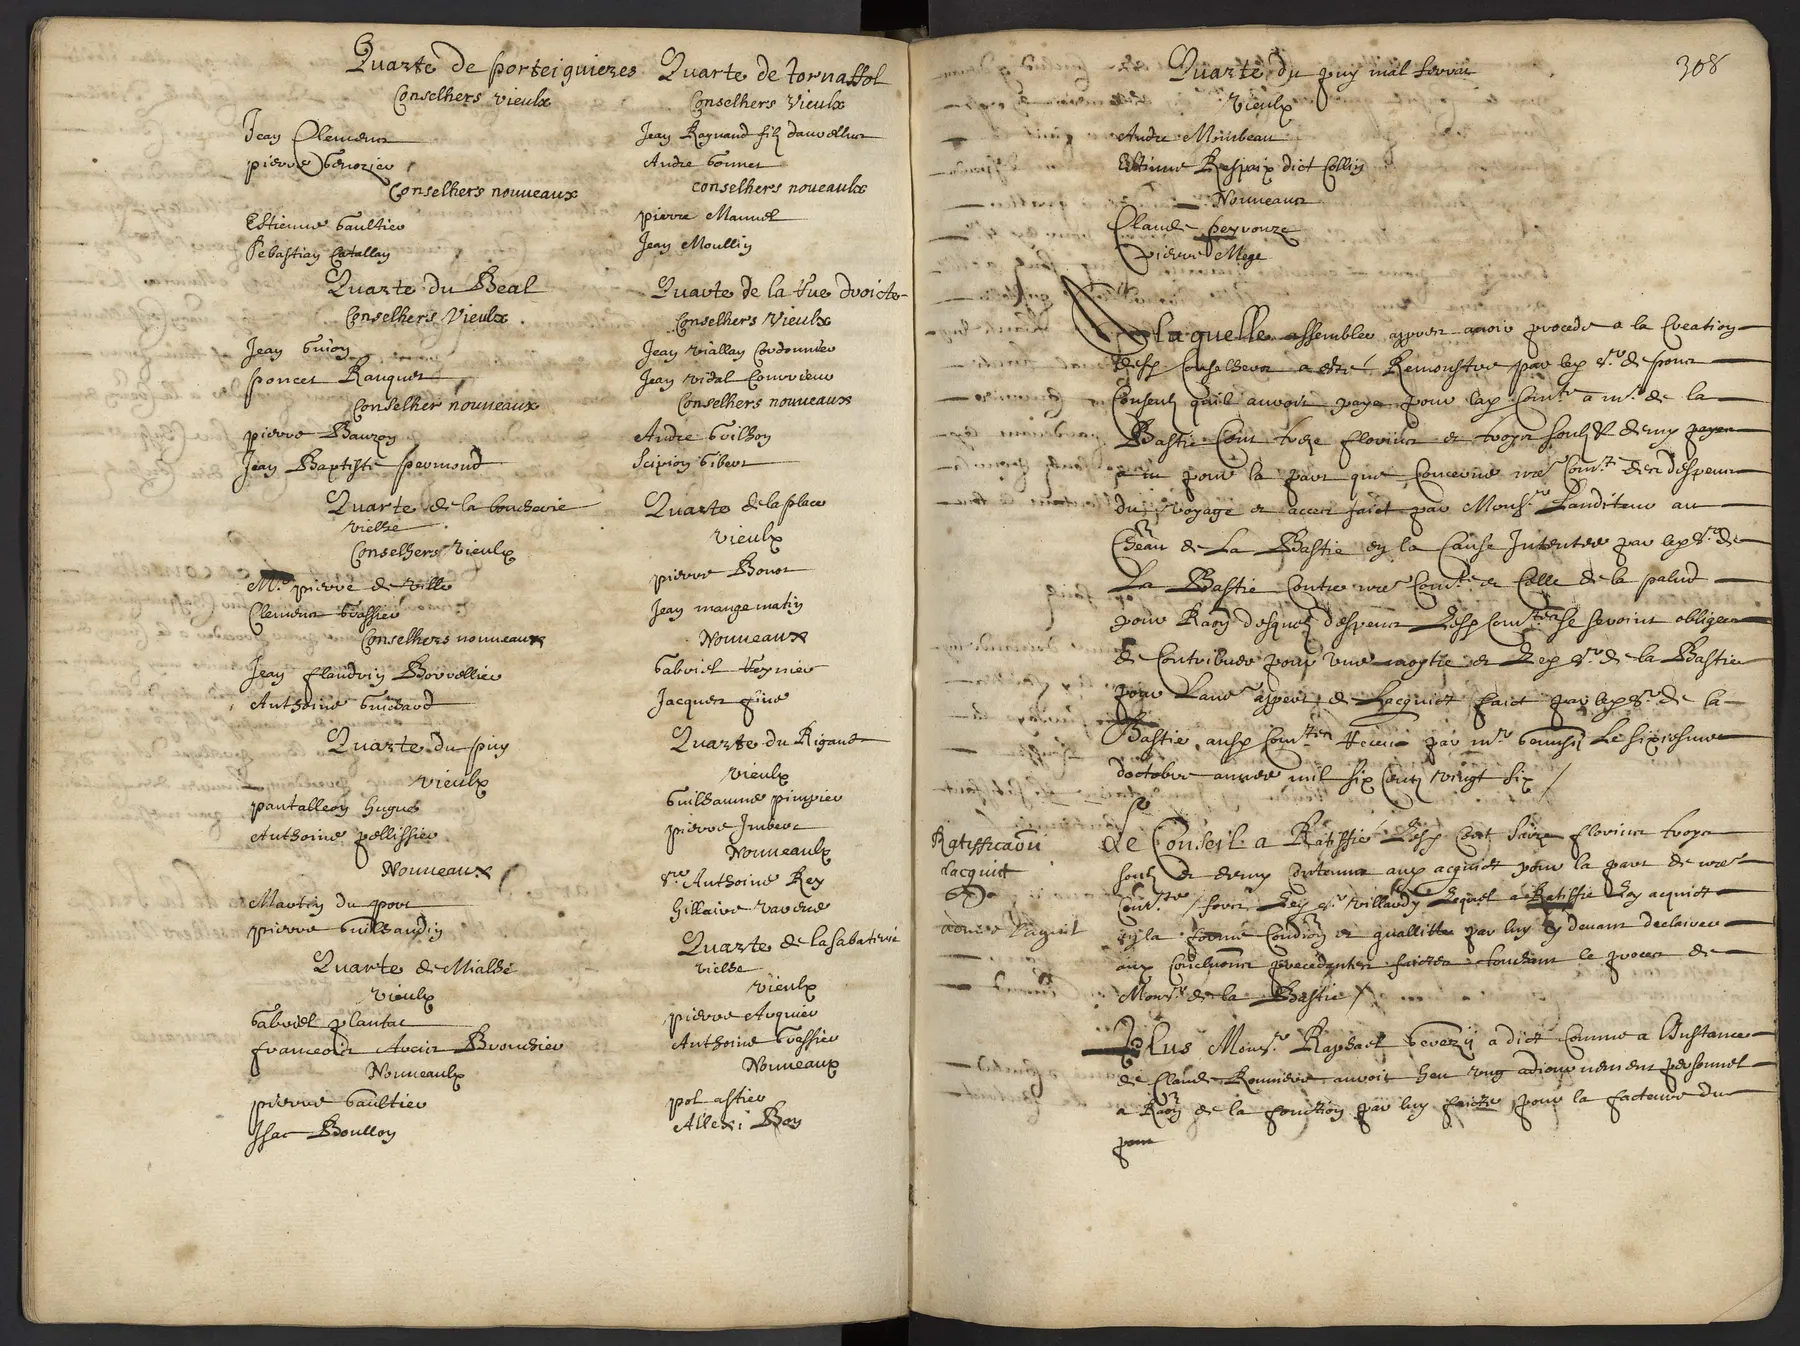 Quarte de porteiguieres
Conselhers vieulx
Jean Clemens
pierre
Conselhers nouveaux
Estienne Gaultier
Sebastian Catallan
Quarte du Beal
Conselhers Vieulx
Jean Guion
ponces Rauques
Conselher nouveaux
pierre Bauzon
Jean Baptiste permond
Quarte de la boucherie
vielhe
Conselhers Vieulx
Me pierre de ville
Clemens Grassier
Conselhers nouveaux
Jean flandrin Borrellier
Anthoine Guichard
Quarte du puy
vieulx
pantalleon hugues
Anthoine pellissier
Nouveaux
Martin du port
pierre Guilhaudin
Quarte de Mialhe
vieulx
Gabriel plantat
francois Brouchier
Nouveaulx
pierre Gaultier
Isac Boullon
Quarte de tornassol
Conselhers Vieulx
Jean Raynaud filz
Andre Bonnet
conselhers noveaulx
pierre Manuel
Jean Moullin
Quarte de la rue droicte
Conselhers Vieulx
Jean viallan Cordonnier
Jean vidal Courrieur
Conselhers nouveaux
Andre Guilhon
Scipion Gibert
Quarte de la place
vieulx
pierre Bonot
Jean mangematin
Nouveaux
Gabriel Reynier
Jacques fine
Quarte du Rigaud
vieulx
Guilhaume pimpier
pierre Imbert
Nouveaulx
sre Anthoine Rey
hillaire
Quarte de la sabaterie
vielhe
vieulx
pierre Arquier
Anthoine Gressier
Nouveaux
pol astier
Allexi Boy
308
Quarte du puy mal
vieulx
Andre Monbeau
Estienne Respaix dict Collin
Nouveaux
Claude peyrouze
pierre Mege
laquelle assemblee appres avoir procede a la Creation
desd Conselhers a este Remonstre par les srs de pons
Consulz quil auroit paye pour lad Comte a mr de la
Bastie Cent treze florins et troys soulz et demy
pour la part que Concerne nre Comte des despens
du voyage et acces faict par Monsr Lauditeur au
de La Bastie en la Cause Intentee par led sr de
La Bastie Contre nre Comte et Celle de la palud
pour Raon desquelz despens Lesd se seroint obligees
de Contribuer pour une moytie et Led sr de la Bastie
pour Laure appert de Lacquict faict par led sr de la
Bastie ausd Receu par mr Le sixiesme
doctobre annee mil six Centz vingt six /
Ratifficaon
lacquict
Le Conseil a Ratiffie Lesd Cent florins troys
soulz et demy Contenus aux acquict pour la part de nre
Comte / fors Ley sr villardy Lequel a Ratiffie Ley acquict
en la forme Condion et quallitte par luy cy devant declairee
aux Concluons precedentes faictes touchant le proces de
Monsr de la Bastie /
Plus Monsr Raphael a dict Comme a lInstance
de Claude auroit heu ung adiournement personnel
a Raon de la fonction par luy faicte pour la facteure du
pont